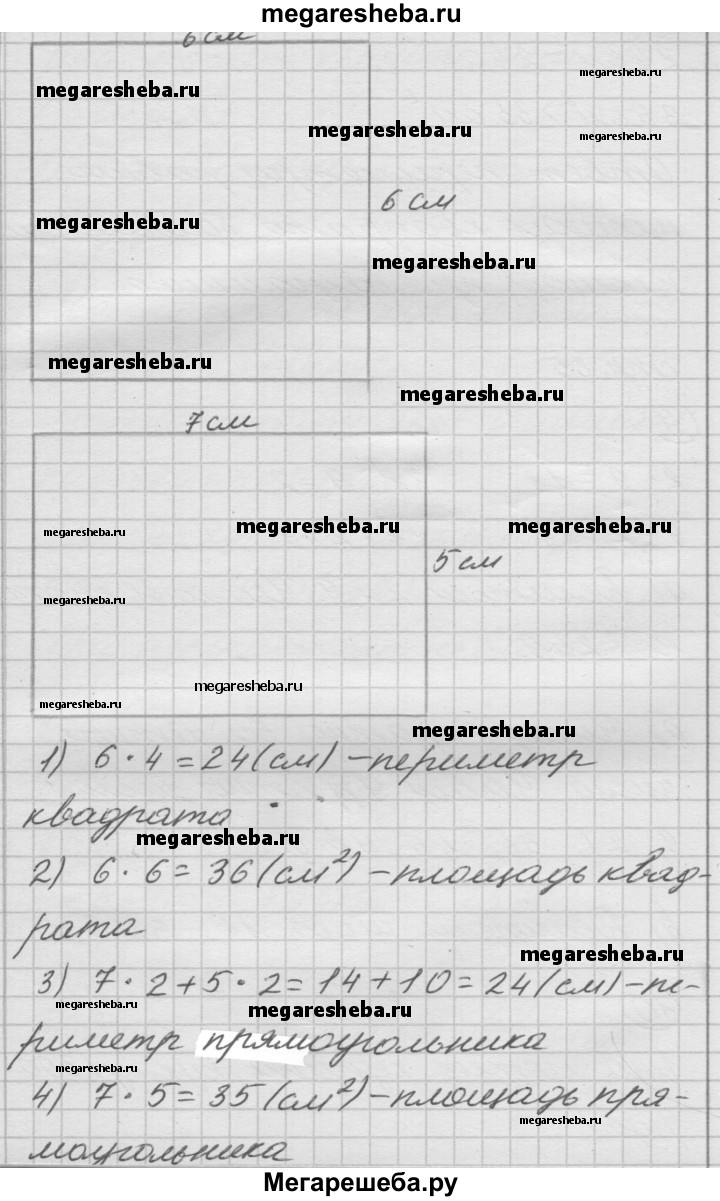 megaresheba.ru
6 см
megaresheba.ru
megaresheba.ru
megaresheba.ru
megaresheba.ru
6 см
megaresheba.ru
megaresheba.ru
megaresheba.ru
megaresheba.ru
7 см
megaresheba.ru
megaresheba.ru
megaresheba.ru
5 см
megaresheba.ru
megaresheba.ru
megaresheba.ru
megaresheba.ru
1) 6 · 4 = 24 (см) – периметр
квадрата
megaresheba.ru
2) 6 · 6 = 36 (см²) – площадь квад-
рата
megaresheba.ru
3) 7 · 2 + 5 · 2 = 14 + 10 = 24 (см) – пе-
megaresheba.ru
megaresheba.ru
риметр прямоугольника
4) 7 · 5 = 35 (см²) – площадь пря-
megaresheba.ru
моугольника
Мегарешеба.ру